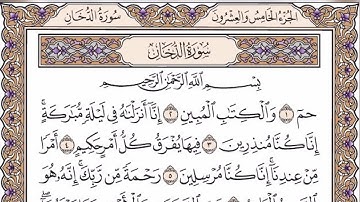 الجزء الخامس والعشرون
سورة الدخان
سُورَةُ الدُّخَانِ
بِسْمِ اللَّهِ الرَّحْمَٰنِ الرَّحِيمِ
حمٓ ۝١ وَالْكِتَابِ الْمُبِينِ ۝٢ إِنَّا أَنزَلْنَاهُ فِي لَيْلَةٍ مُّبَارَكَةٍ ۚ
إِنَّا كُنَّا مُنذِرِينَ ۝٣ فِيهَا يُفْرَقُ كُلُّ أَمْرٍ حَكِيمٍ ۝٤ أَمْرًا
مِّنْ عِندِنَا ۚ إِنَّا كُنَّا مُرْسِلِينَ ۝٥ رَحْمَةً مِّن رَّبِّكَ ۚ إِنَّهُ هُوَ